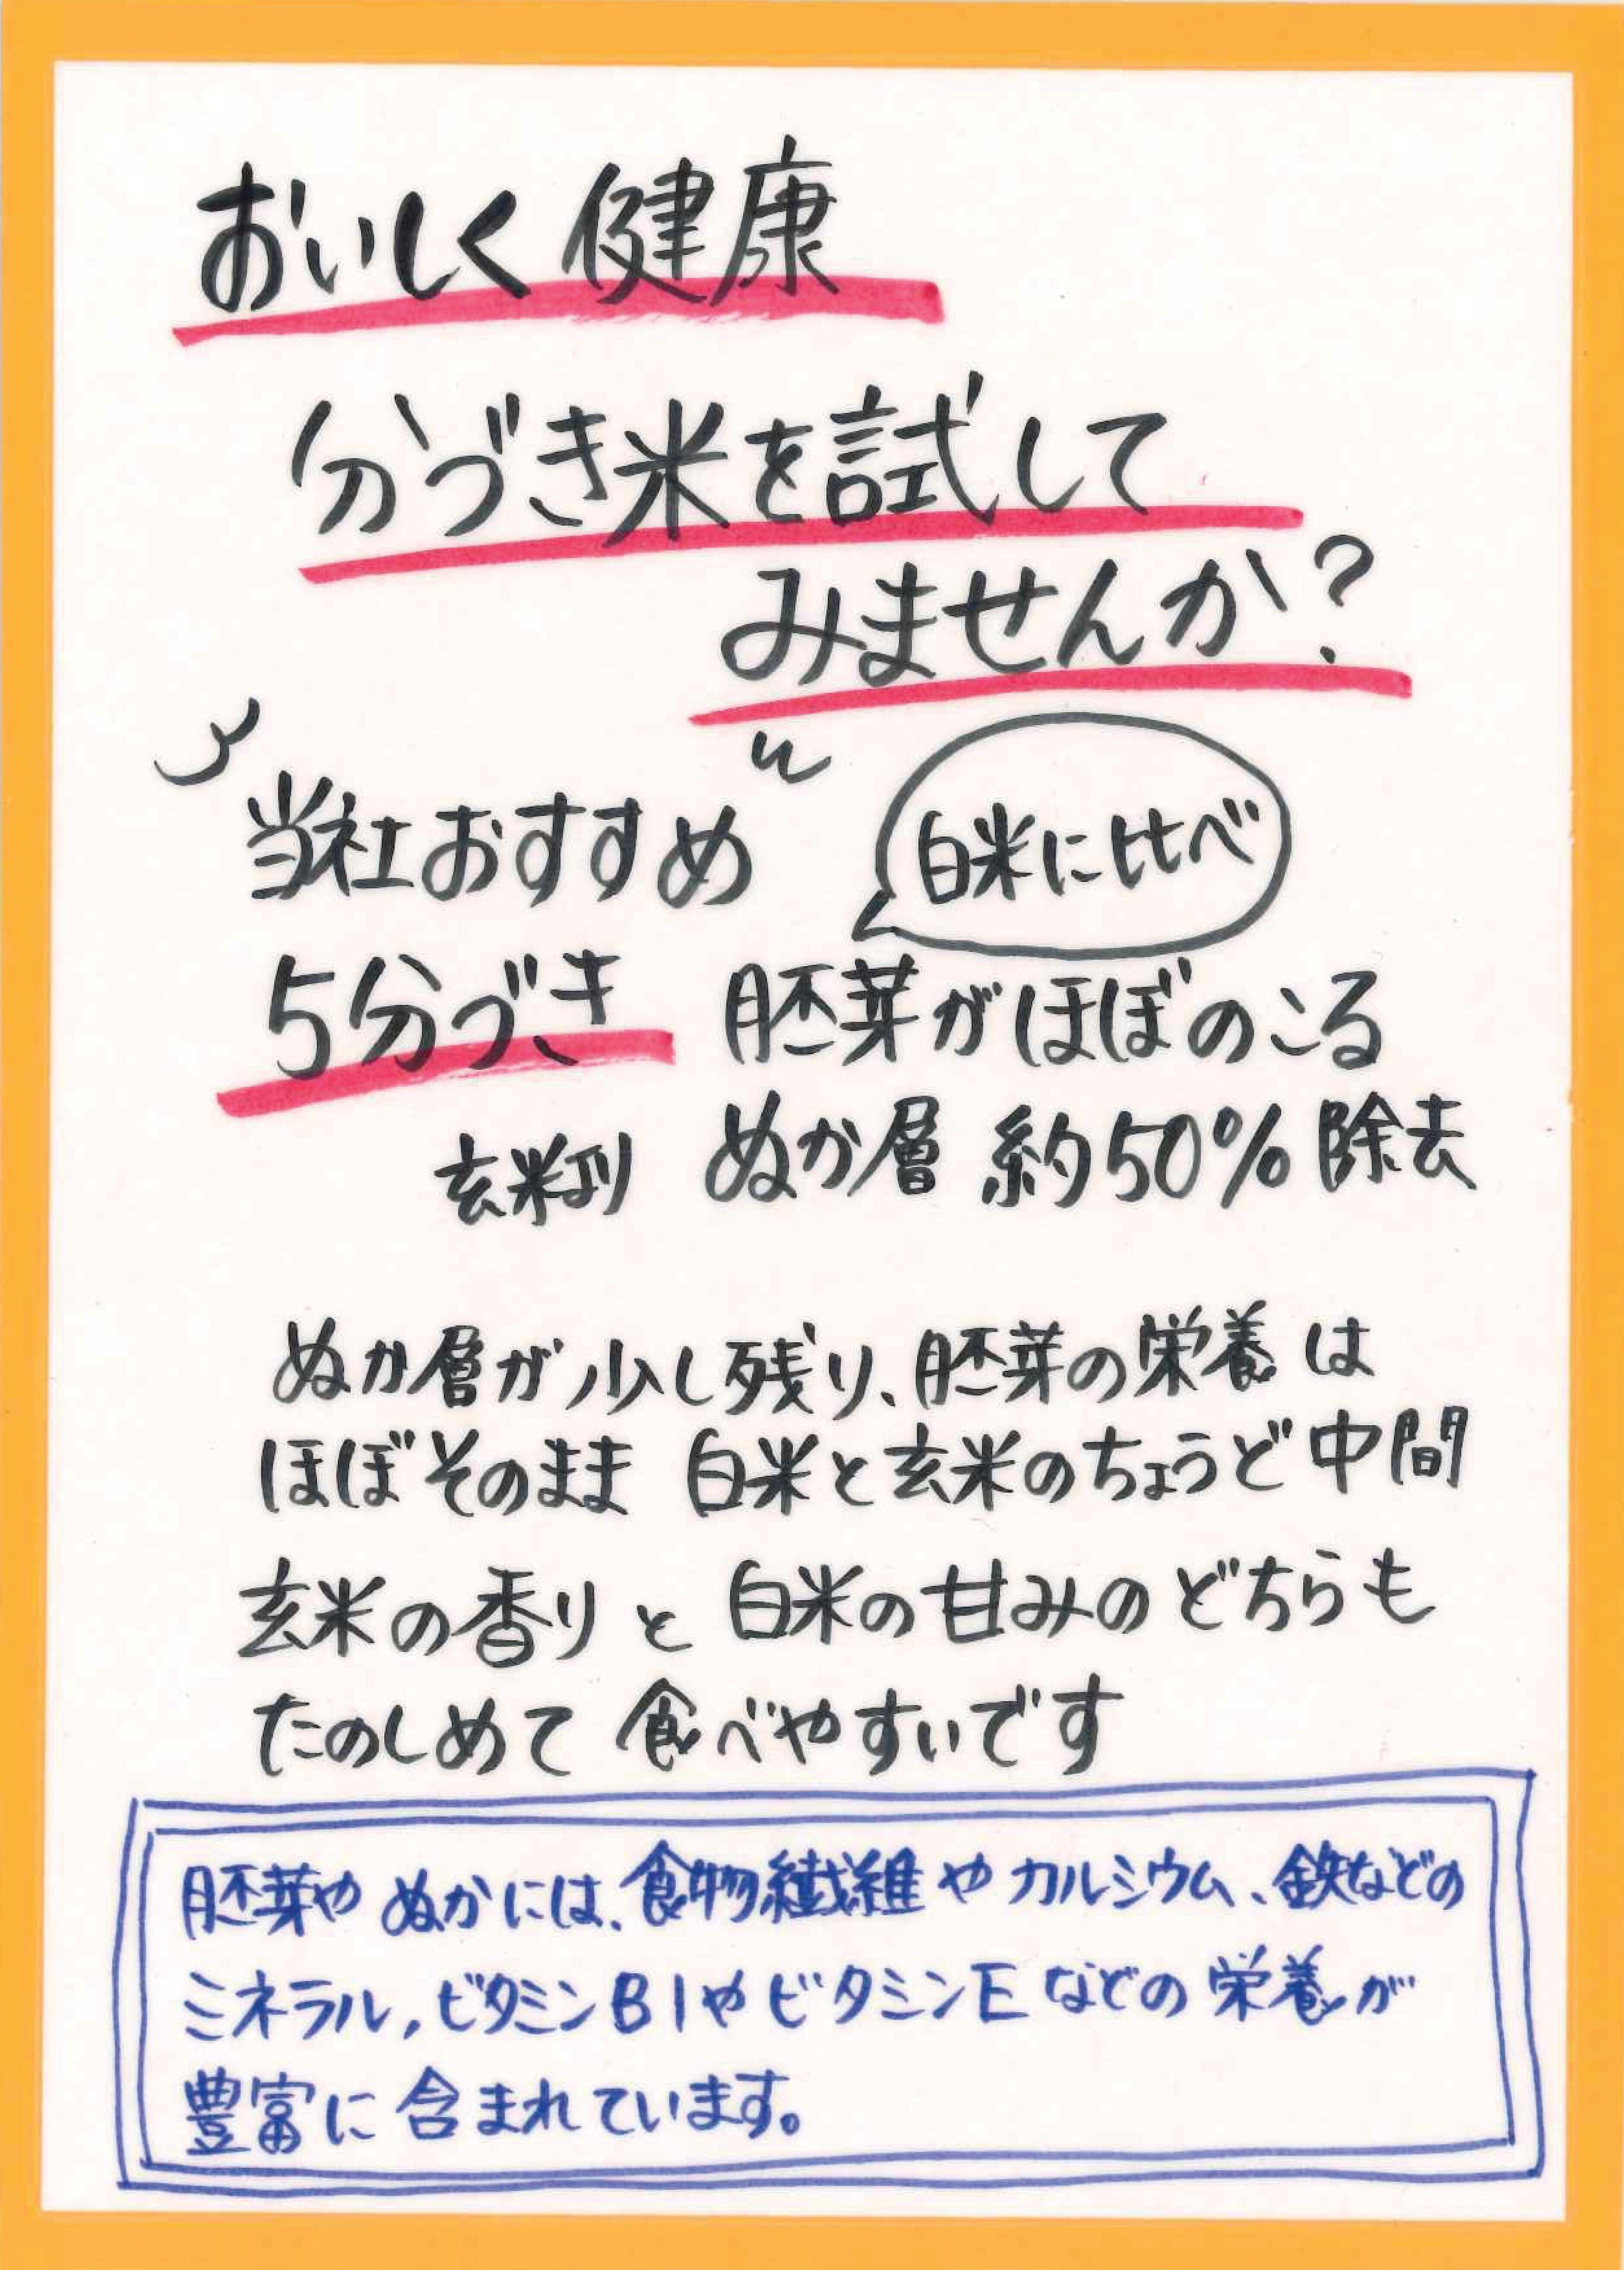 おいしく健康
分づき米を試して
みませんか?
当社おすすめ
白米に比べ
5分づき 胚芽がほぼのこる
玄米より ぬか層 約50%除去
ぬか層が少し残り、胚芽の栄養は
ほぼそのまま 白米と玄米のちょうど中間
玄米の香りと 白米の甘みのどちらも
たのしめて 食べやすいです
胚芽や ぬかには、食物繊維や カルシウム、鉄などの
ミネラル,ビタミンB1やビタミンEなどの栄養が
豊富に含まれています。